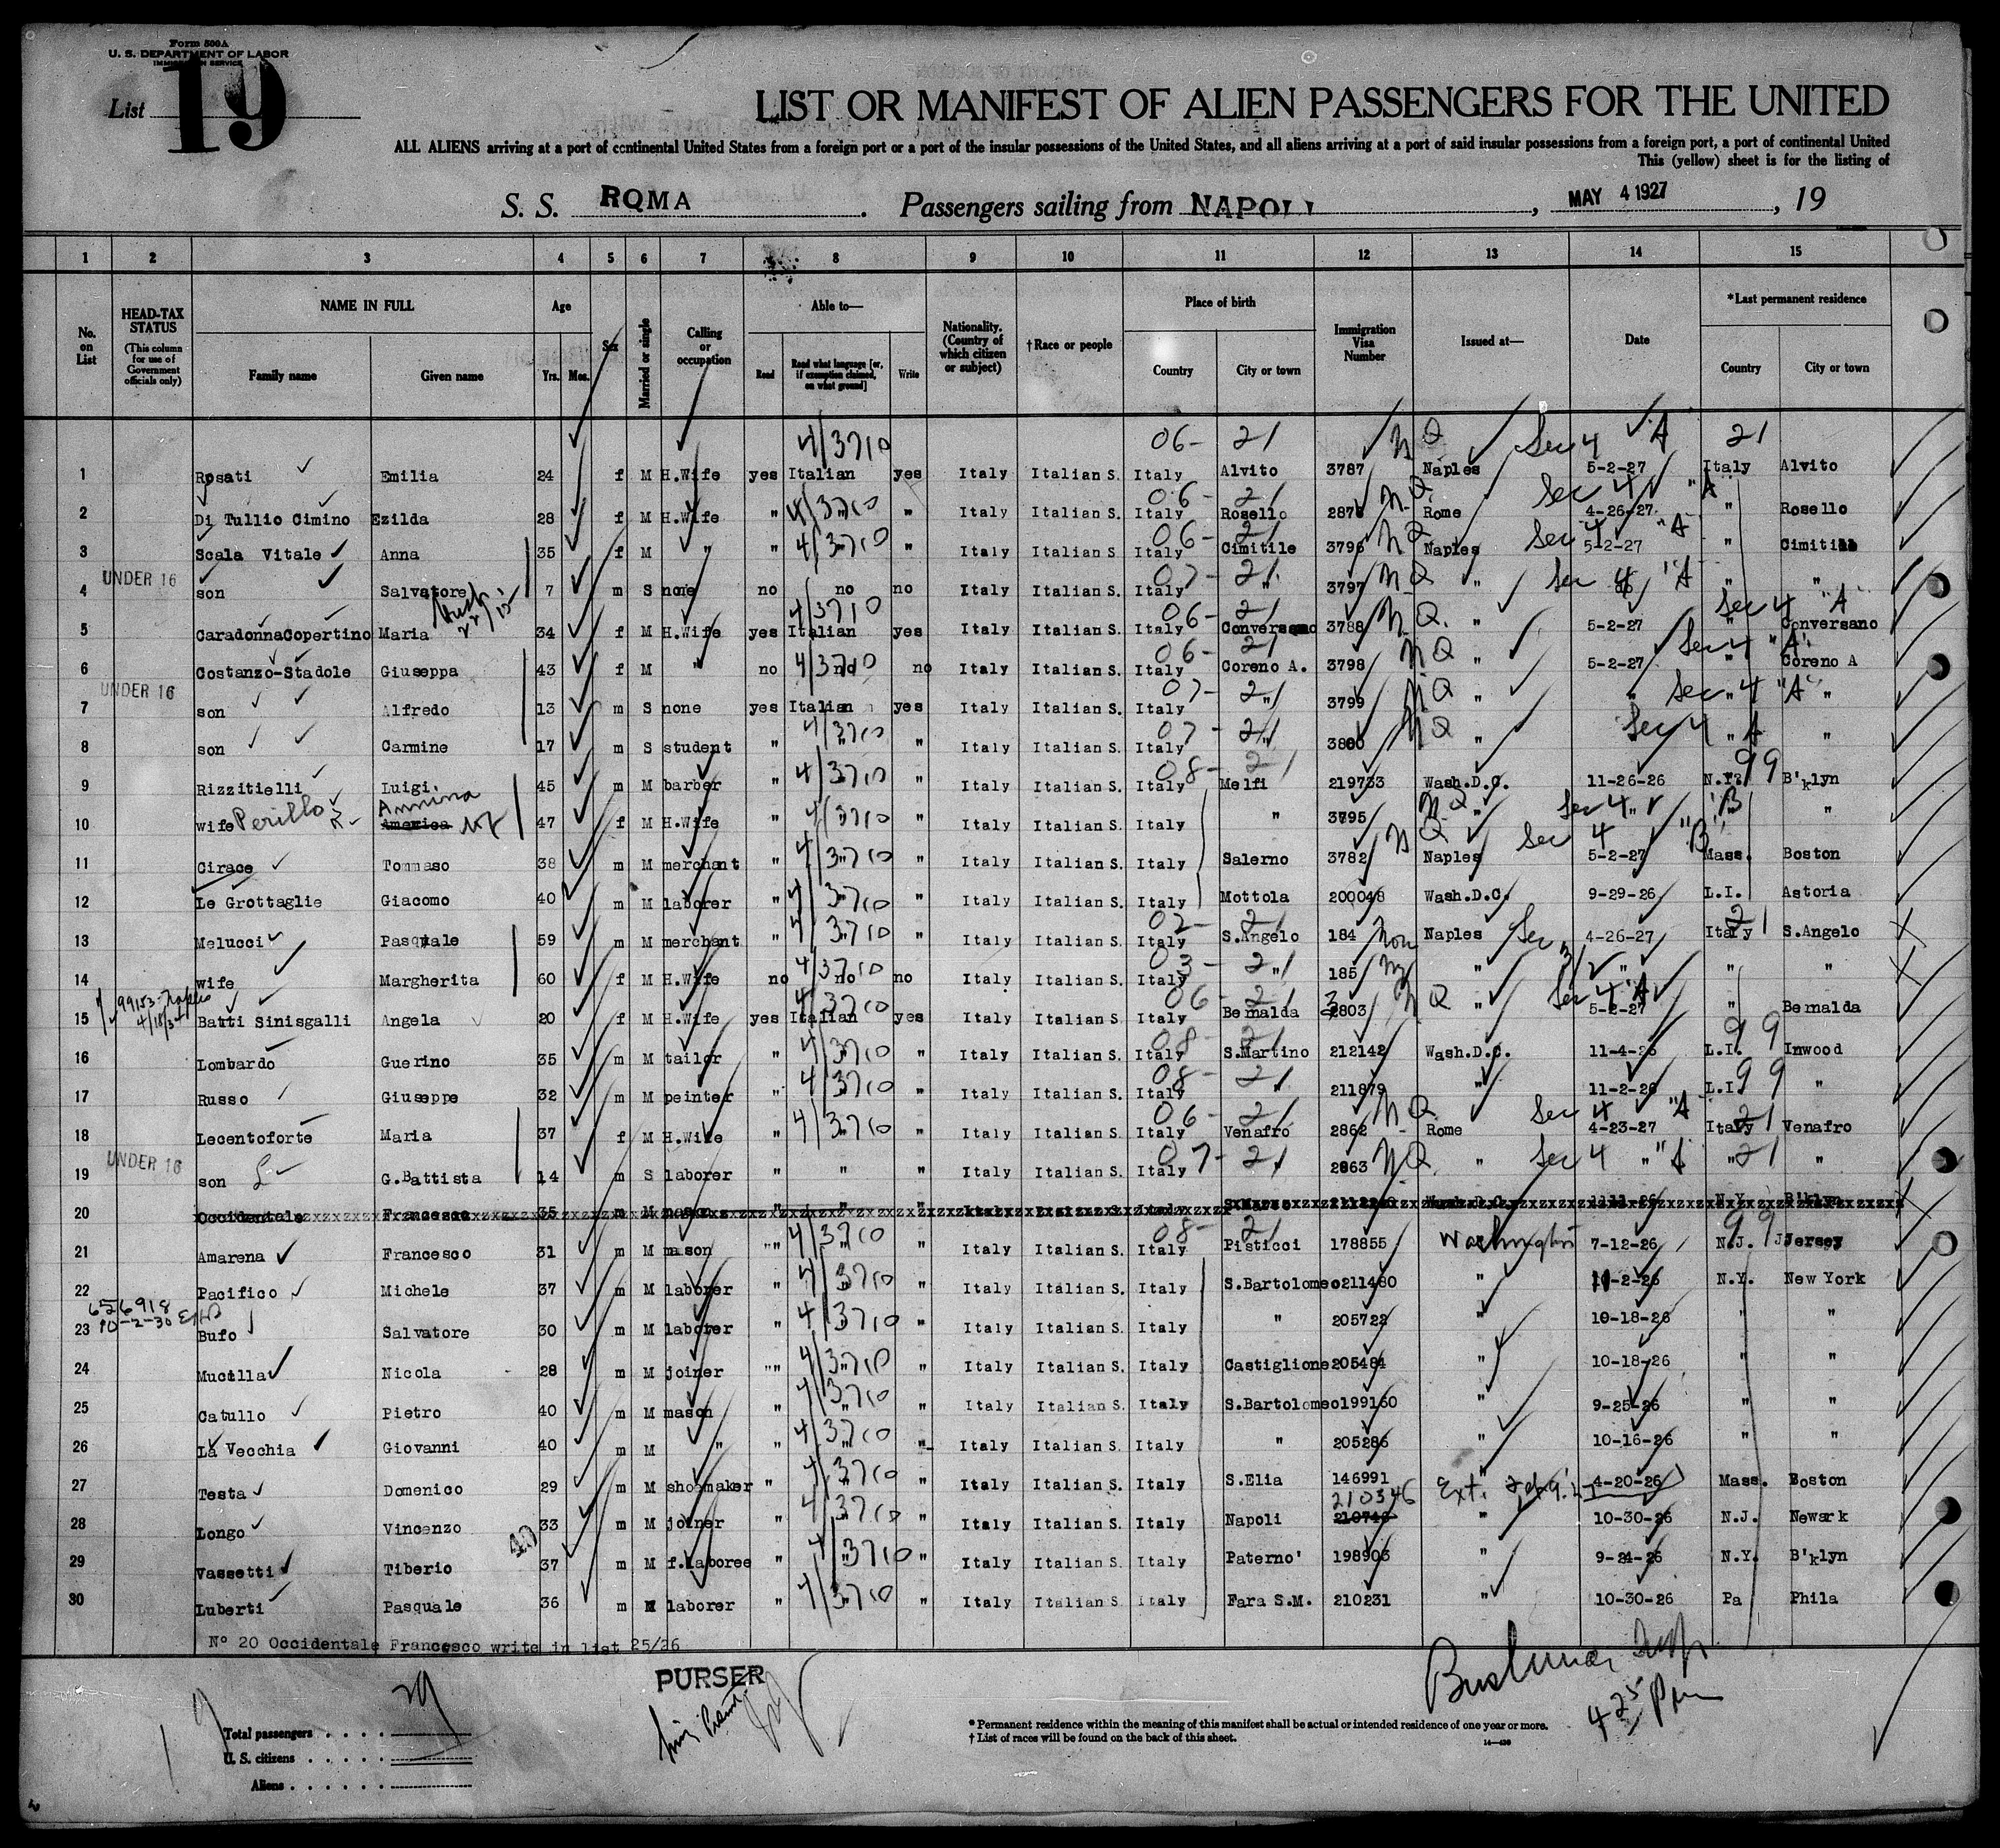 Form 500A
U. S. DEPARTMENT OF LABOR
IMMIGRATION SERVICE
List 19
LIST OR MANIFEST OF ALIEN PASSENGERS FOR THE UNITED
ALL ALIENS arriving at a port of continental United States from a foreign port or a port of the insular possessions of the United States, and all aliens arriving at a port of said insular possessions from a foreign port, a port of continental United
This (yellow) sheet is for the listing of
S. S. ROMA. Passengers sailing from NAPOLI, MAY 4 1927, 19
1 2 3 4 5 6 7 8 9 10 11 12 13 14 15
No. on List
HEAD-TAX STATUS (This column for use of Government officials only)
NAME IN FULL
Family name Given name
Age
Yrs. Mos.
Sex
Married or single
Calling or occupation
Able to—
Read Read what language [or, if exemption claimed, on what ground] Write
Nationality. (Country of which citizen or subject)
†Race or people
Place of birth
Country City or town
Immigration Visa Number
Issued at—
Date
*Last permanent residence
Country City or town
4/3710 06- 21 NQ Sec 4 "A" 21
1 Rosati Emilia 24 f M H.Wife yes Italian yes Italy Italian S. Italy Alvito 3787 Naples 5-2-27 Italy Alvito
4/3710 06- 21 NQ Sec 4 "A"
2 Di Tullio Cimino Ezilda 28 f M H.Wife " " " Italy Italian S. Italy Rosello 2876 Rome 4-26-27 " Rosello
4/3710 06- 21 NQ Sec 4 "A"
3 Scala Vitale Anna 35 f M " " " " Italy Italian S. Italy Cimitile 3796 Naples 5-2-27 " Cimitile
UNDER 16 07- 21 NQ Sec 4 "A"
4 son Salvatore 7 m S none no no no Italy Italian S. Italy " 3797 " " " "
4/3710 06- 21 NQ. Sec 4 "A"
5 CaradonnaCopertino Maria 34 f M H.Wife yes Italian yes Italy Italian S. Italy Conversano 3788 " 5-2-27 " Conversano
4/3710 06- 21 NQ Sec 4 "A"
6 Costanzo-Stadole Giuseppa 43 f M " no no no Italy Italian S. Italy Coreno A. 3798 " 5-2-27 " Coreno A
UNDER 16 07- 21 NQ Sec 4 "A"
7 son Alfredo 13 m S none yes Italian yes Italy Italian S. Italy " 3799 " " " "
4/3710 07- 21 NQ Sec 4 A
8 son Carmine 17 m S student " " " Italy Italian S. Italy " 3800 " " "
4/3710 08- 21 99
9 Rizzitielli Luigi 45 m M barber " " " Italy Italian S. Italy Melfi 219733 Wash.D.C. 11-26-26 N.Y. B'klyn
Annina 4/3710 NQ Sec 4 "B"
10 wife Perillo America 47 f M H.Wife " " " Italy Italian S. Italy " 3795 " " " "
4/3710 NQ Sec 4 "B"
11 Cirace Tommaso 38 m M merchant " " " Italy Italian S. Italy Salerno 3782 Naples 5-2-27 Mass. Boston
4/3710
12 Le Grottaglie Giacomo 40 m M laborer " " " Italy Italian S. Italy Mottola 200048 Wash.D.C. 9-29-26 L.I. Astoria
4/3710 02- 21 Non Sec 3 21
13 Melucci Pasquale 59 m M merchant " " " Italy Italian S. Italy S.Angelo 184 Naples 4-26-27 Italy S.Angelo
4/3710 03- 21
14 wife Margherita 60 f M H.Wife no no no Italy Italian S. Italy " 185 " " " "
4/3710 06- 21 NQ Sec 4 "A"
15 Batti Sinisgalli Angela 20 f M H.Wife yes Italian yes Italy Italian S. Italy Bernalda 3803 " 5-2-27 " Bernalda
4/3710 08- 21 99
16 Lombardo Guerino 35 m M tailor " " " Italy Italian S. Italy S.Martino 212142 Wash.D.C. 11-4-26 L.I. Inwood
4/3710 08- 21 99
17 Russo Giuseppe 32 m M peinter " " " Italy Italian S. Italy " 211879 " 11-2-26 L.I. "
4/3710 06- 21 NQ Sec 4 "A" 21
18 Lecentoforte Maria 37 f M H.Wife " " " Italy Italian S. Italy Venafro 2862 Rome 4-23-27 Italy Venafro
UNDER 16 07- 21 NQ Sec 4 "A" 21
19 son G.Battista 14 m S laborer " " " Italy Italian S. Italy " 2863 " " " "
20 Occidentale Francesco 35 m M mason " " " Italy Italian S. Italy S.Marco Wash.D.C. N.Y. B'klyn
4/3710 08- 21 99
21 Amarena Francesco 31 m M mason " " " Italy Italian S. Italy Pisticci 178855 Washington 7-12-26 N.J. Jersey
4/3710
22 Pacifico Michele 37 m M laborer " " " Italy Italian S. Italy S.Bartolomeo 211480 " 11-2-26 N.Y. New York
656918 10-2-30 4/3710
23 Bufo Salvatore 30 m M laborer " " " Italy Italian S. Italy " 205722 " 10-18-26 " "
4/3710
24 Mucilla Nicola 28 m M joiner " " " Italy Italian S. Italy Castiglione 205484 " 10-18-26 " "
4/3710
25 Catullo Pietro 40 m M mason " " " Italy Italian S. Italy S.Bartolomeo 199160 " 9-25-26 " "
4/3710
26 La Vecchia Giovanni 40 m M " " " " Italy Italian S. Italy " 205286 " 10-16-26 " "
4/3710
27 Testa Domenico 29 m M shoemaker " " " Italy Italian S. Italy S.Elia 146991 " 4-20-26 Mass. Boston
4/3710 210346 Ext.
28 Longo Vincenzo 33 m M joiner " " " Italy Italian S. Italy Napoli 210746 " 10-30-26 N.J. Newark
40 4/3710
29 Vassetti Tiberio 37 m M f.laboree " " " Italy Italian S. Italy Paterno' 198903 " 9-24-26 N.Y. B'klyn
4/3710
30 Luberti Pasquale 36 m M laborer " " " Italy Italian S. Italy Fara S.M. 210231 " 10-30-26 Pa Phila
N° 20 Occidentale Francesco write in list 25/26
PURSER
29
19
Total passengers
U. S. citizens
Aliens
* Permanent residence within the meaning of this manifest shall be actual or intended residence of one year or more.
† List of races will be found on the back of this sheet.
425 Pm